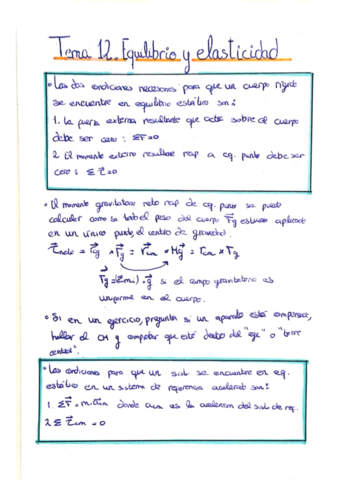 Tema 12. Equilibrio y elasticidad
• Las dos condiciones necesarias para que un cuerpo rígido
se encuentre en equilibrio estático son:
1. La fuerza externa resultante que actúa sobre el cuerpo
debe ser cero: ΣF=0
2. El momento externo resultante resp a cq. punto debe ser
cero: Σ τ⃗=0
• El momento gravitatorio neto resp de cq. punto se puede
calcular como si todo el peso del cuerpo F⃗g estuviese aplicado
en un único punto, el centro de gravedad.
F⃗g=(Σmi)·g⃗ si el campo gravitatorio es
uniforme en el cuerpo.
• Si en un ejercicio, preguntan si un aparato está compensado,
hallar el CM y comprobar que esté dentro del "eje" o "torre
central".
• Las condiciones para que un sist. se encuentre en eq.
estático en un sistema de referencia acelerado son:
1. ΣF⃗ = m·a⃗cm donde acm es la aceleración del sist de ref.
2. Σ τ⃗cm = 0